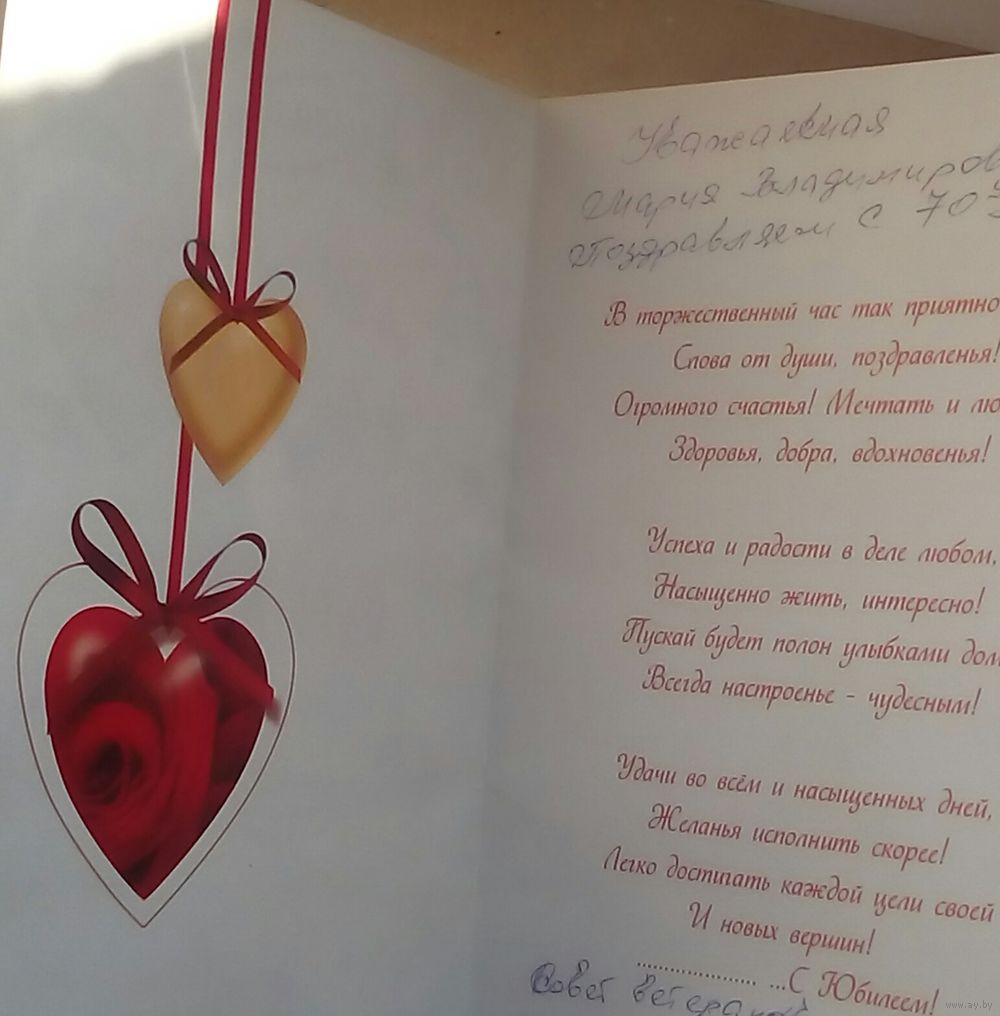 Уважаемая
Мария Владимиров
Поздравляем с 70
В торжественный час так приятно
Слова от души, поздравленья!
Огромного счастья! Мечтать и лю
Здоровья, добра, вдохновенья!
Успеха и радости в деле любом,
Насыщенно жить, интересно!
Пускай будет полон улыбками дом
Всегда настроенье - чудесным!
Удачи во всём и насыщенных дней,
Желанья исполнить скорее!
Легко достигать каждой цели своей
И новых вершин!
...................... ...С Юбилеем!
Совет ветеранов
www.ay.by